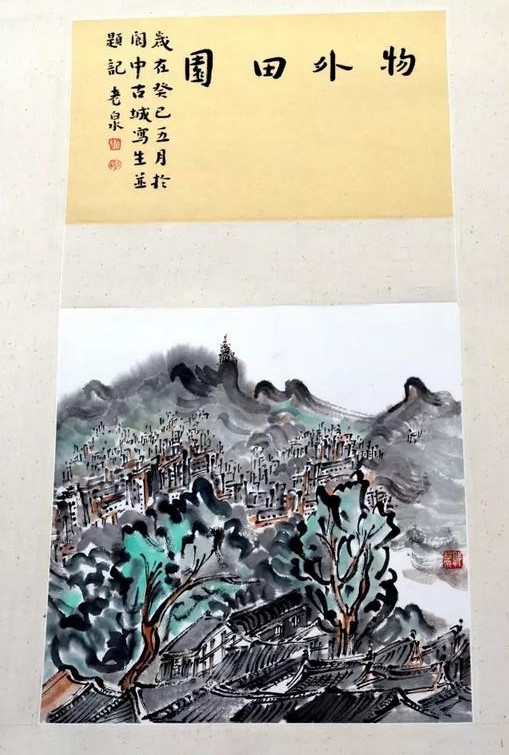 物外田園
歲在癸巳五月於
閬中古城寫生並
題記 老泉